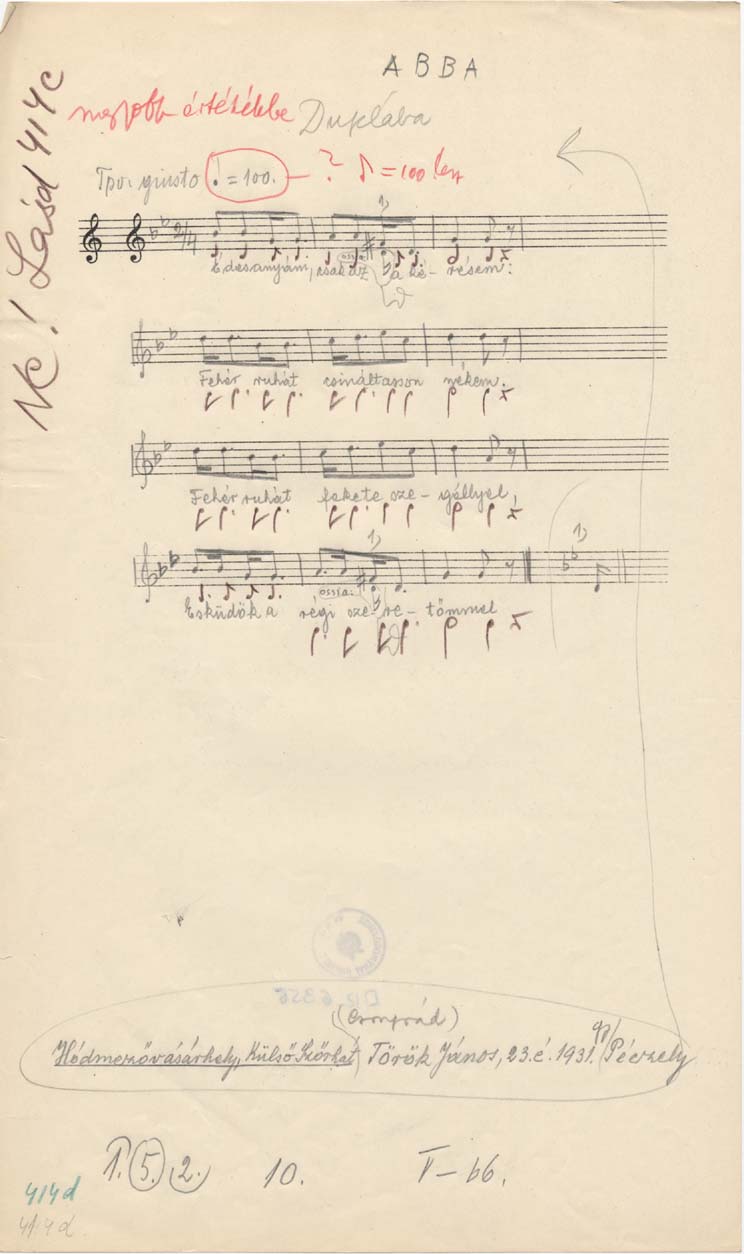 ABBA
Ne! Lásd 414c
nagyobb értékbe Duplába
Tpo. giusto ♩= 100. - ? ♪ = 100 lesz
1)
2/4
Édesanyám, csak az a ké- résem:
ossia:
Fehér ruhát csináltasson nékem.
Fehér ruhát fekete sze- géllyel,
1) 1)
ossia:
Esküdök a régi sze- re- tőmmel
(Csongrád)
Hódmezővásárhely, Külső Szőrhát, Török János, 23.é. 1931. Péczely
I. 5. 2. 10. V- b6.
414d
414d